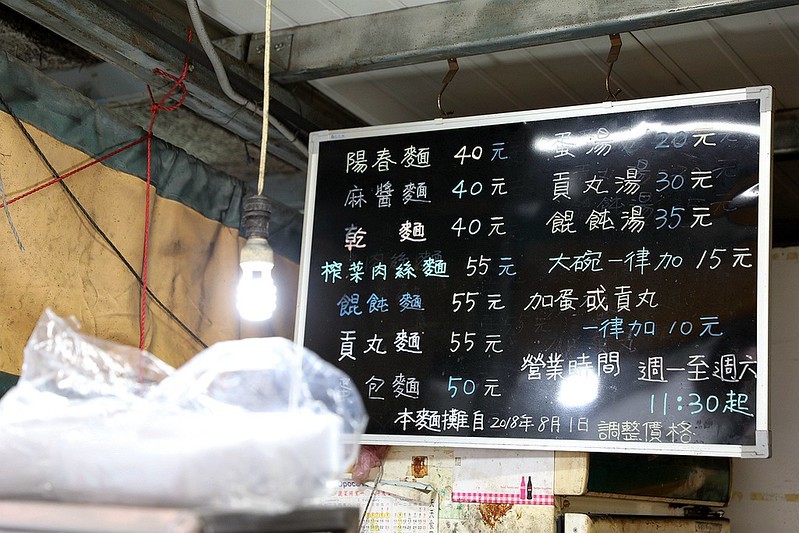 陽春麵 40元
麻醬麵 40元
乾 麵 40元
榨菜肉絲麵 55元
餛飩麵 55元
貢丸麵 55元
蛋包麵 50元
蛋湯 20元
貢丸湯 30元
餛飩湯 35元
大碗一律加 15元
加蛋或貢丸
一律加 10元
營業時間 週一至週六
11:30起
本麵攤自2018年8月1日 調整價格